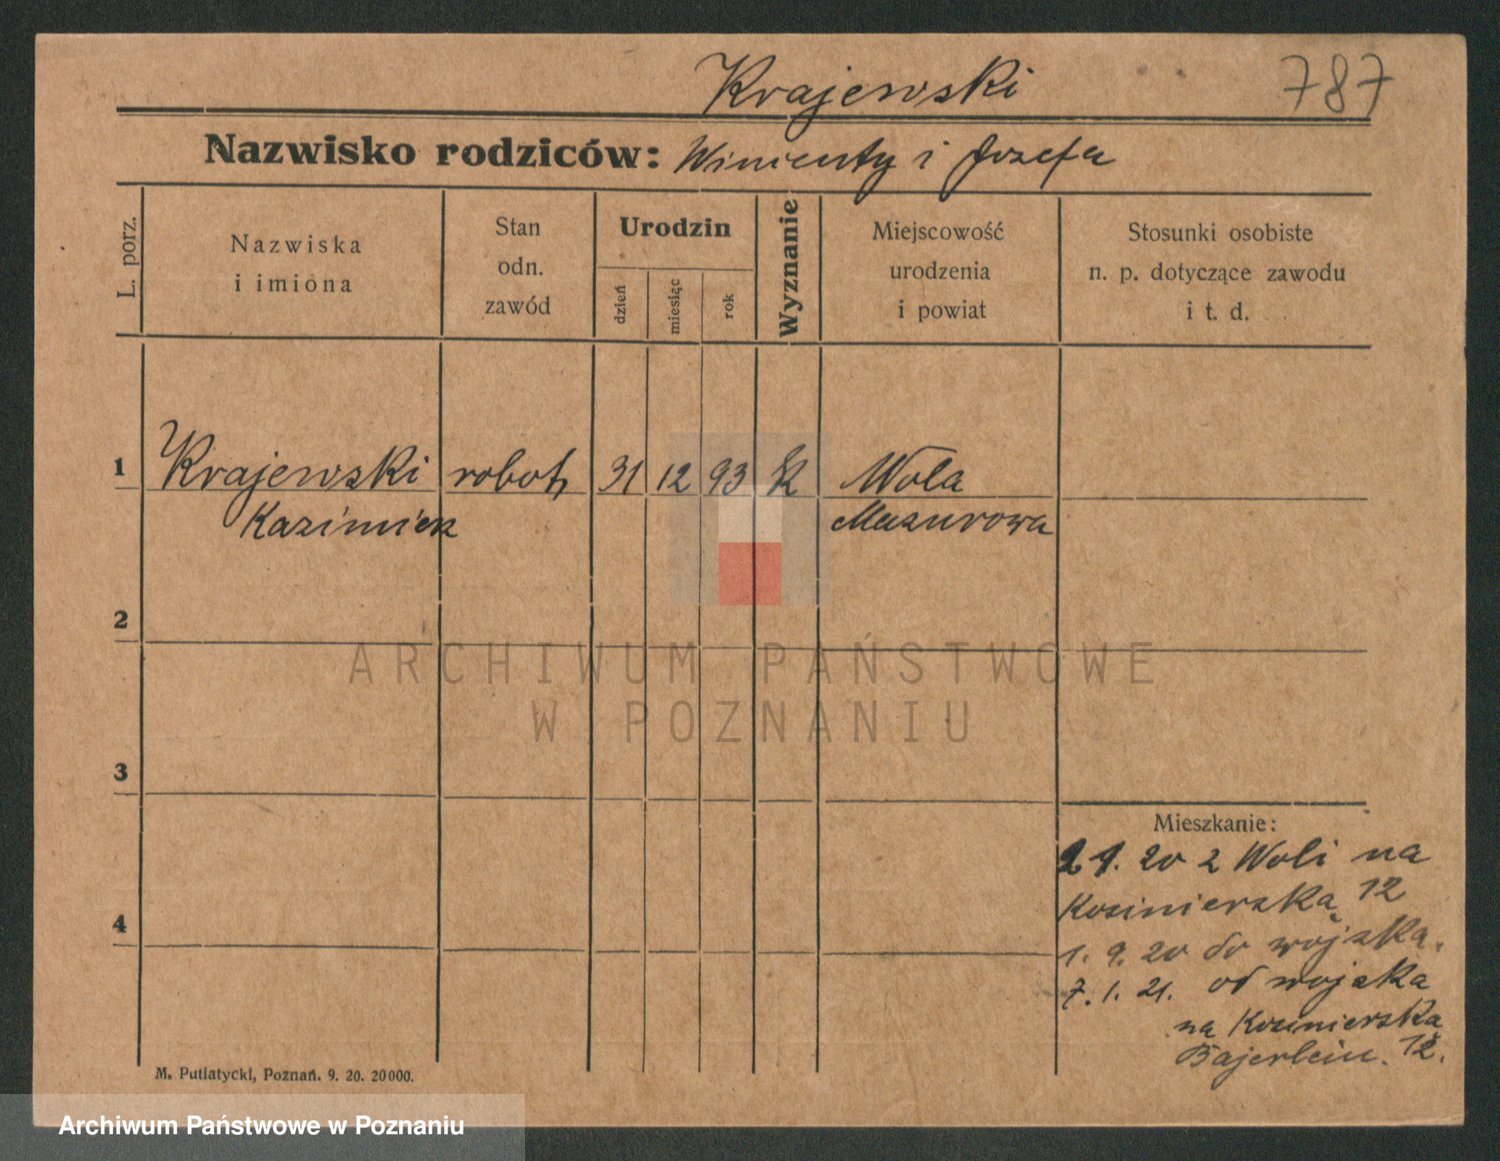 Krajewski 787
Nazwisko rodziców: Wincenty i Józefa
L. porz.
Nazwiska
i imiona
Stan
odn.
zawód
Urodzin
dzień
miesiąc
rok
Wyznanie
Miejscowość
urodzenia
i powiat
Stosunki osobiste
n. p. dotyczące zawodu
i t. d.
1 Krajewski robotn 31 12 93 K Wola
Kazimierz Mazurowa
2
ARCHIWUM PAŃSTWOWE
W POZNANIU
3
Mieszkanie:
20 z Woli na
Kosinierską 12
4
1. 9. 20 do wojska.
7. 1. 21. od wojska
na Kosinierską
Bajerlein. 12.
M. Putiatycki, Poznań. 9. 20. 20000.
Archiwum Państwowe w Poznaniu